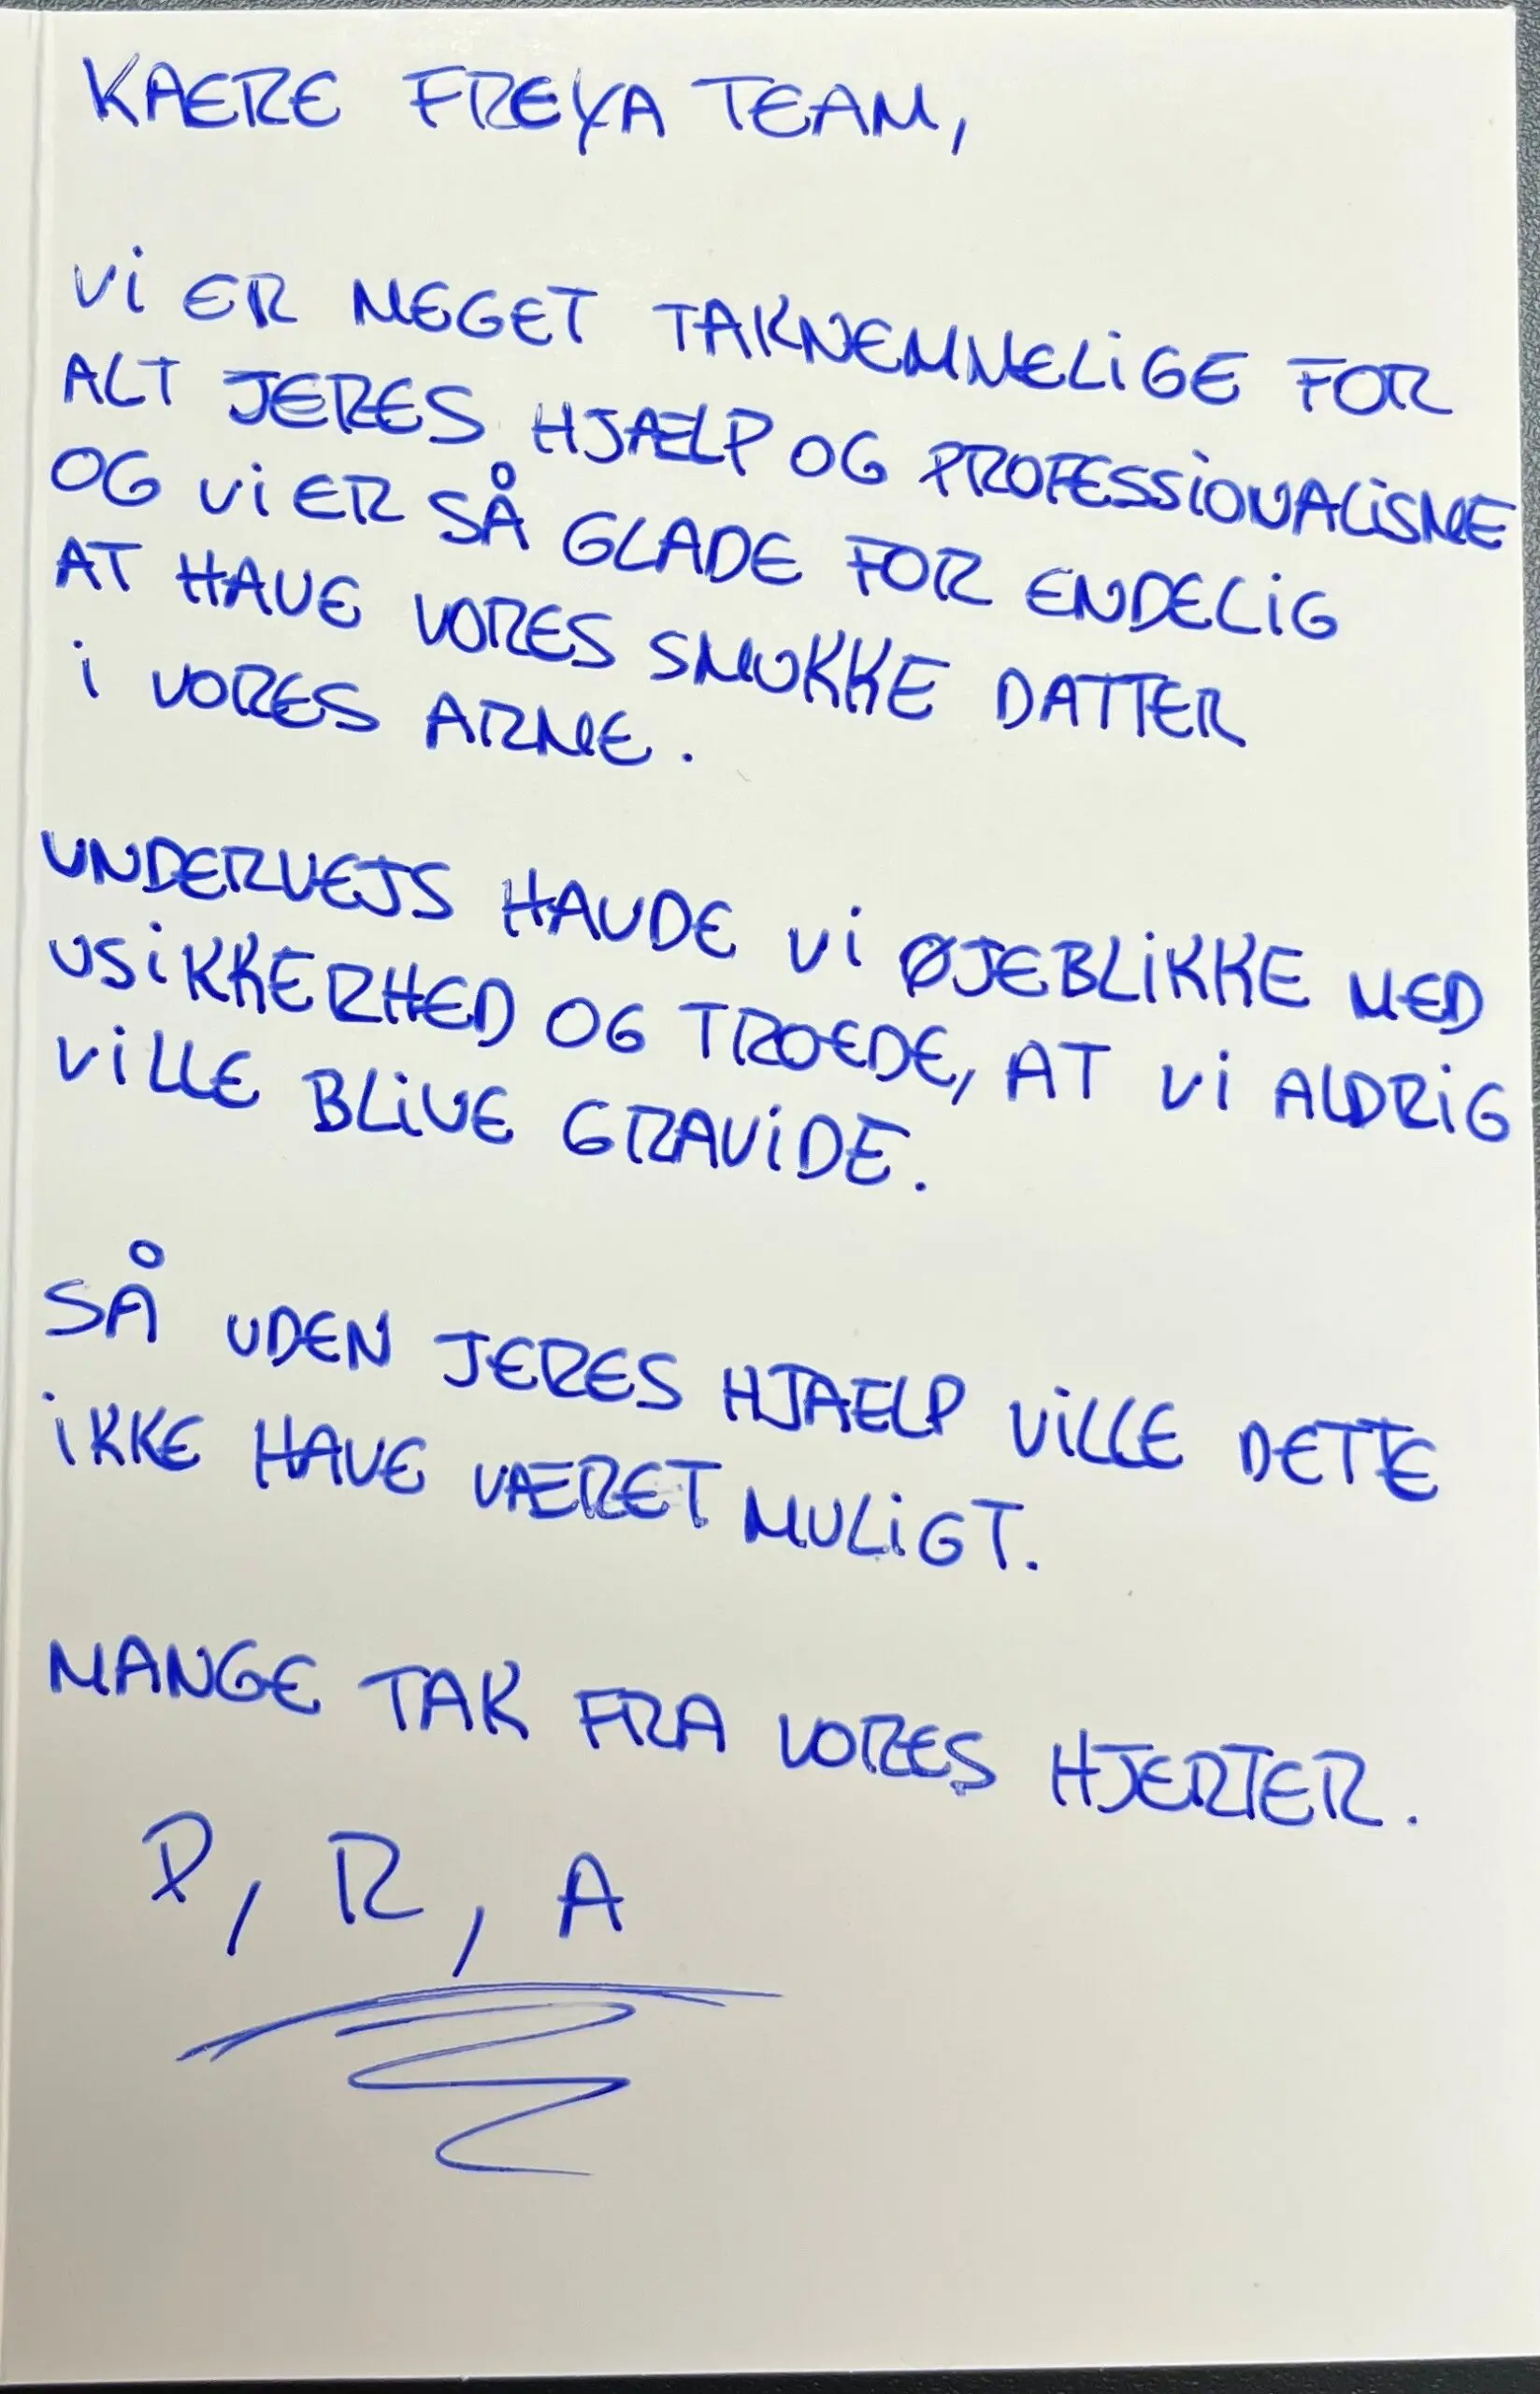 KAERE FREYA TEAM,
Vi ER MEGET TAKNEMMELiGE FOR
ALT JERES HJÆLP OG PROFESSiONALiSME
OG Vi ER SÅ GLADE FOR ENDELiG
AT HAVE VORES SMUKKE DATTER
i VORES ARME.
UNDERVEJS HAVDE Vi ØJEBLiKKE MED
USiKKERHED OG TROEDE, AT Vi ALDRiG
ViLLE BLiVE GRAViDE.
SÅ UDEN JERES HJAELP ViLLE DETTE
iKKE HAVE VÆRET MULiGT.
MANGE TAK FRA VORES HJERTER.
P, R, A